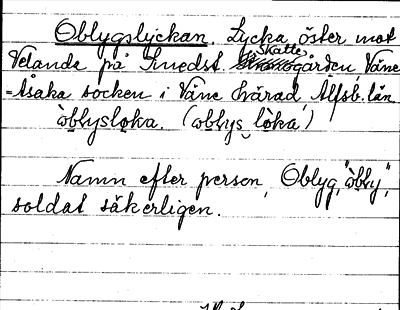 Oblygslyckan. Lycka öster mot
Velanda på Smedst. Skattegården, Väne
-Åsaka socken i Väne härad, Älfsb. län
òb̥lyslo̥ka. (òb̥lys_lòka)
Namn efter person, Oblyg, "òb̥ly",
soldat säkerligen.